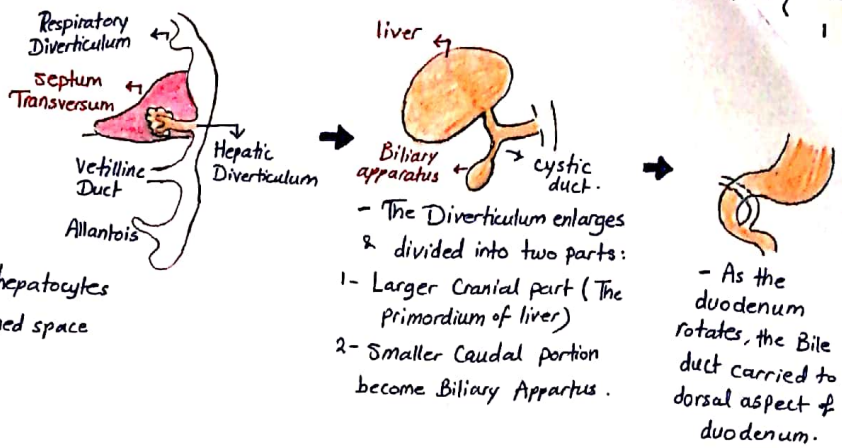 Respiratory
Diverticulum
Septum
Transversum
Hepatic
Diverticulum
Vetilline
Duct
Allantois
hepatocytes
ned space
liver
Biliary
apparatus
cystic
duct.
- The Diverticulum enlarges
& divided into two parts:
1- Larger Cranial part (The
primordium of liver)
2- Smaller Caudal portion
become Biliary Appartus.
- As the
duodenum
rotates, the Bile
duct carried to
dorsal aspect of
duodenum.